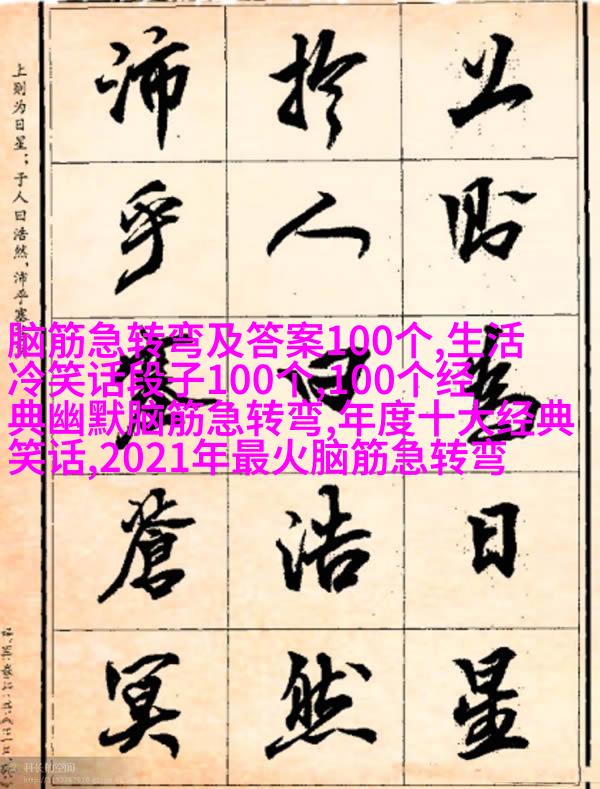 上則為日星
於人曰浩然
沛乎塞蒼冥
上则为日星;于人曰浩然,沛乎塞
脑筋急转弯及答案100个,生活
冷笑话段子100个,100个经
典幽默脑筋急转弯,年度十大经典
笑话,2021年最火脑筋急转弯
科长的空间